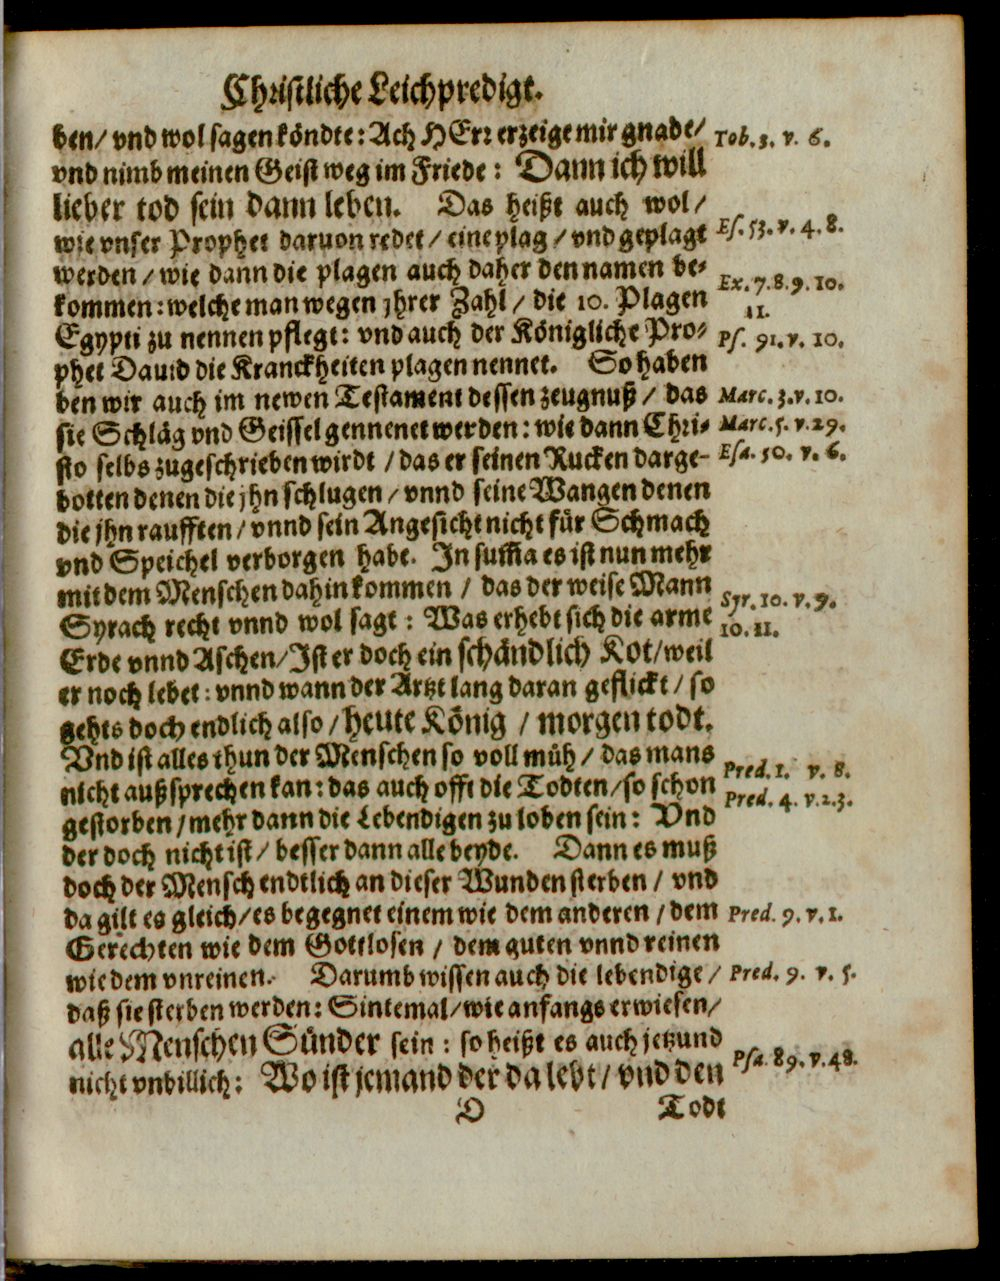 Christliche Leichpredigt.
ben/ vnd wol sagen köndte: Ach HErr erzeige mir gnade/ Tob. 3. v. 6.
vnd nimb meinen Geist weg im Friede: Dann ich will
lieber tod sein dann leben. Das heißt auch wol/
wie vnser Prophet daruon redet/ eine plag/ vnd geplagt Es. 53. v. 4. 8.
werden/ wie dann die plagen auch daher den namen be-
kommen: welche man wegen jhrer Zahl/ die 10. Plagen Ex. 7. 8. 9. 10.
11.
Egypti zu nennen pflegt: vnd auch der Königliche Pro- Ps. 91. v. 10.
phet Dauid die Kranckheiten plagen nennet. So haben
ben wir auch im newen Testament dessen zeugnuß/ das Marc. 3. v. 10.
sie Schläg vnd Geissel gennenet werden: wie dann Chri- Marc. 5. v. 29.
sto selbs zugeschrieben wirdt/ das er seinen Rucken darge- Esa. 50. v. 6.
botten denen die jhn schlugen/ vnnd seine Wangen denen
die jhn raufften/ vnnd sein Angesicht nicht für Schmach
vnd Speichel verborgen habe. In sum̃a es ist nun mehr
mit dem Menschen dahin kommen/ das der weise Mann
Syrach recht vnnd wol sagt: Was erhebt sich die arme Syr. 10. v. 9.
10. 11.
Erde vnnd Aschen/ Ist er doch ein schändlich Kot/ weil
er noch lebet: vnnd wann der Artzt lang daran geflickt/ so
gehts doch endlich also/ heute König/ morgen todt.
Vnd ist alles thun der Menschen so voll müh/ das mans Pred. 1. v. 8.
nicht außsprechen kan: das auch offt die Todten/ so schon Pred. 4. v. 2. 3.
gestorben/ mehr dann die Lebendigen zu loben sein: Vnd
der doch nicht ist/ besser dann alle beyde. Dann es muß
doch der Mensch endtlich an dieser Wunden sterben/ vnd
da gilt es gleich/ es begegnet einem wie dem anderen/ dem Pred. 9. v. 1.
Gerechten wie dem Gottlosen/ dem guten vnnd reinen
wie dem vnreinen. Darumb wissen auch die lebendige/ Pred. 9. v. 5.
daß sie sterben werden: Sintemal/ wie anfangs erwiesen/
alle Menschen Sünder sein: so heißt es auch jetzund
nicht vnbillich: Wo ist jemand der da lebt/ vnd den Psa. 89. v. 48.
D Todt